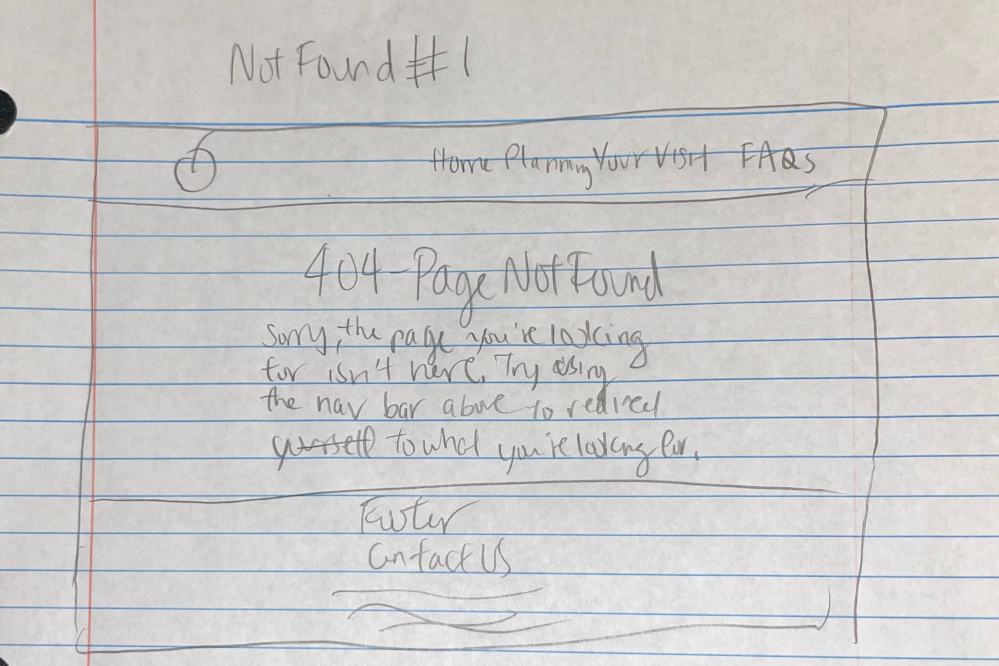 Not Found #1
Home Planning Your Visit FAQs
404 - Page Not Found
Sorry, the page you're looking
for isn't here. Try using
the nav bar above to redirect
yourself to what you're looking for.
Footer
Contact Us